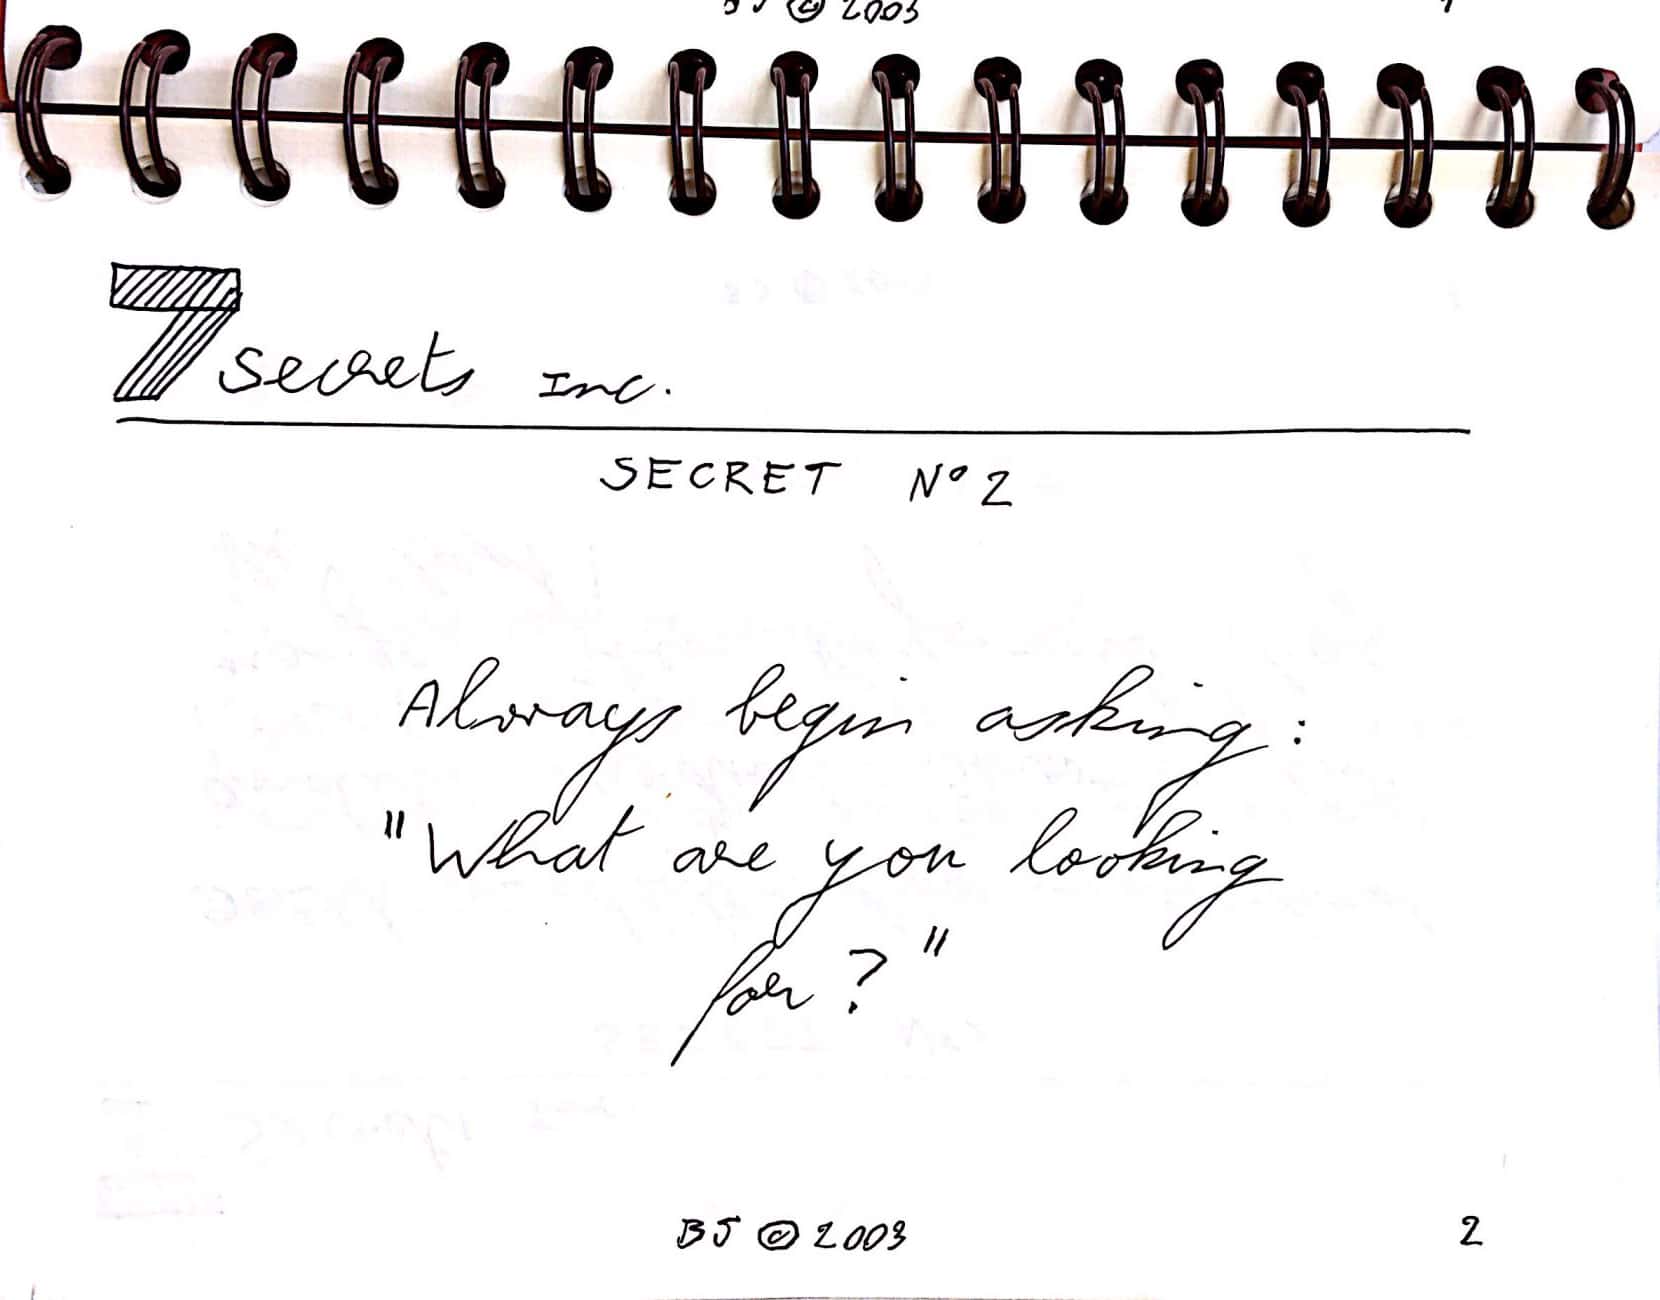 BJ © 2003
7 secrets Inc.
SECRET Nº 2
Always begin asking:
"What are you looking
for?"
BJ © 2003
2